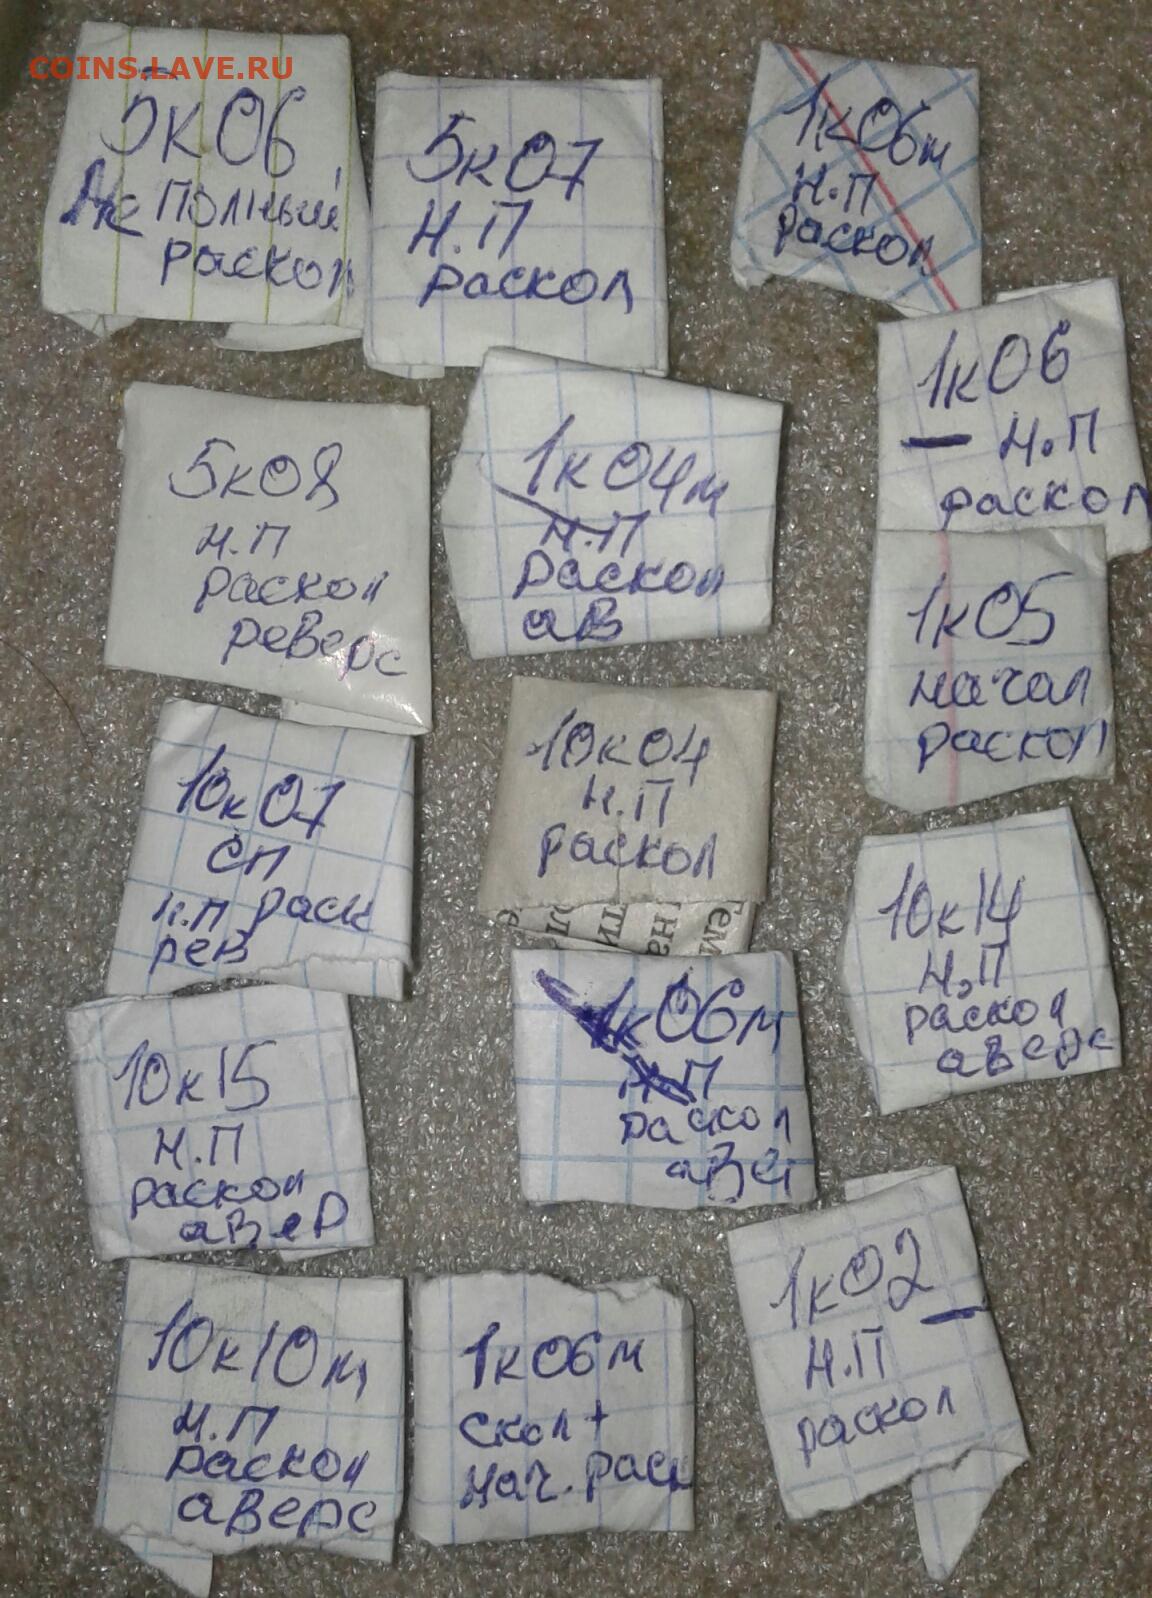 COINS.LAVE.RU
5к06
Не Полный
раскол
5к07
Н.П
раскол
1к06м
Н.П
раскол
1к06
Н.П
раскол
5к08
Н.П
раскол
реверс
1к04м
Н.П
раскол
ав
1к05
начал
раскол
10к07
СП
Н.П раск
рев
10к04
Н.П
раскол
10к14
Н.П
раскол
аверс
10к15
Н.П
раскол
авер
1к06м
Н.П
раскол
аве
10к10м
Н.П
раскол
аверс
1к06м
скол+
нач. раск
1к02
Н.П
раскол